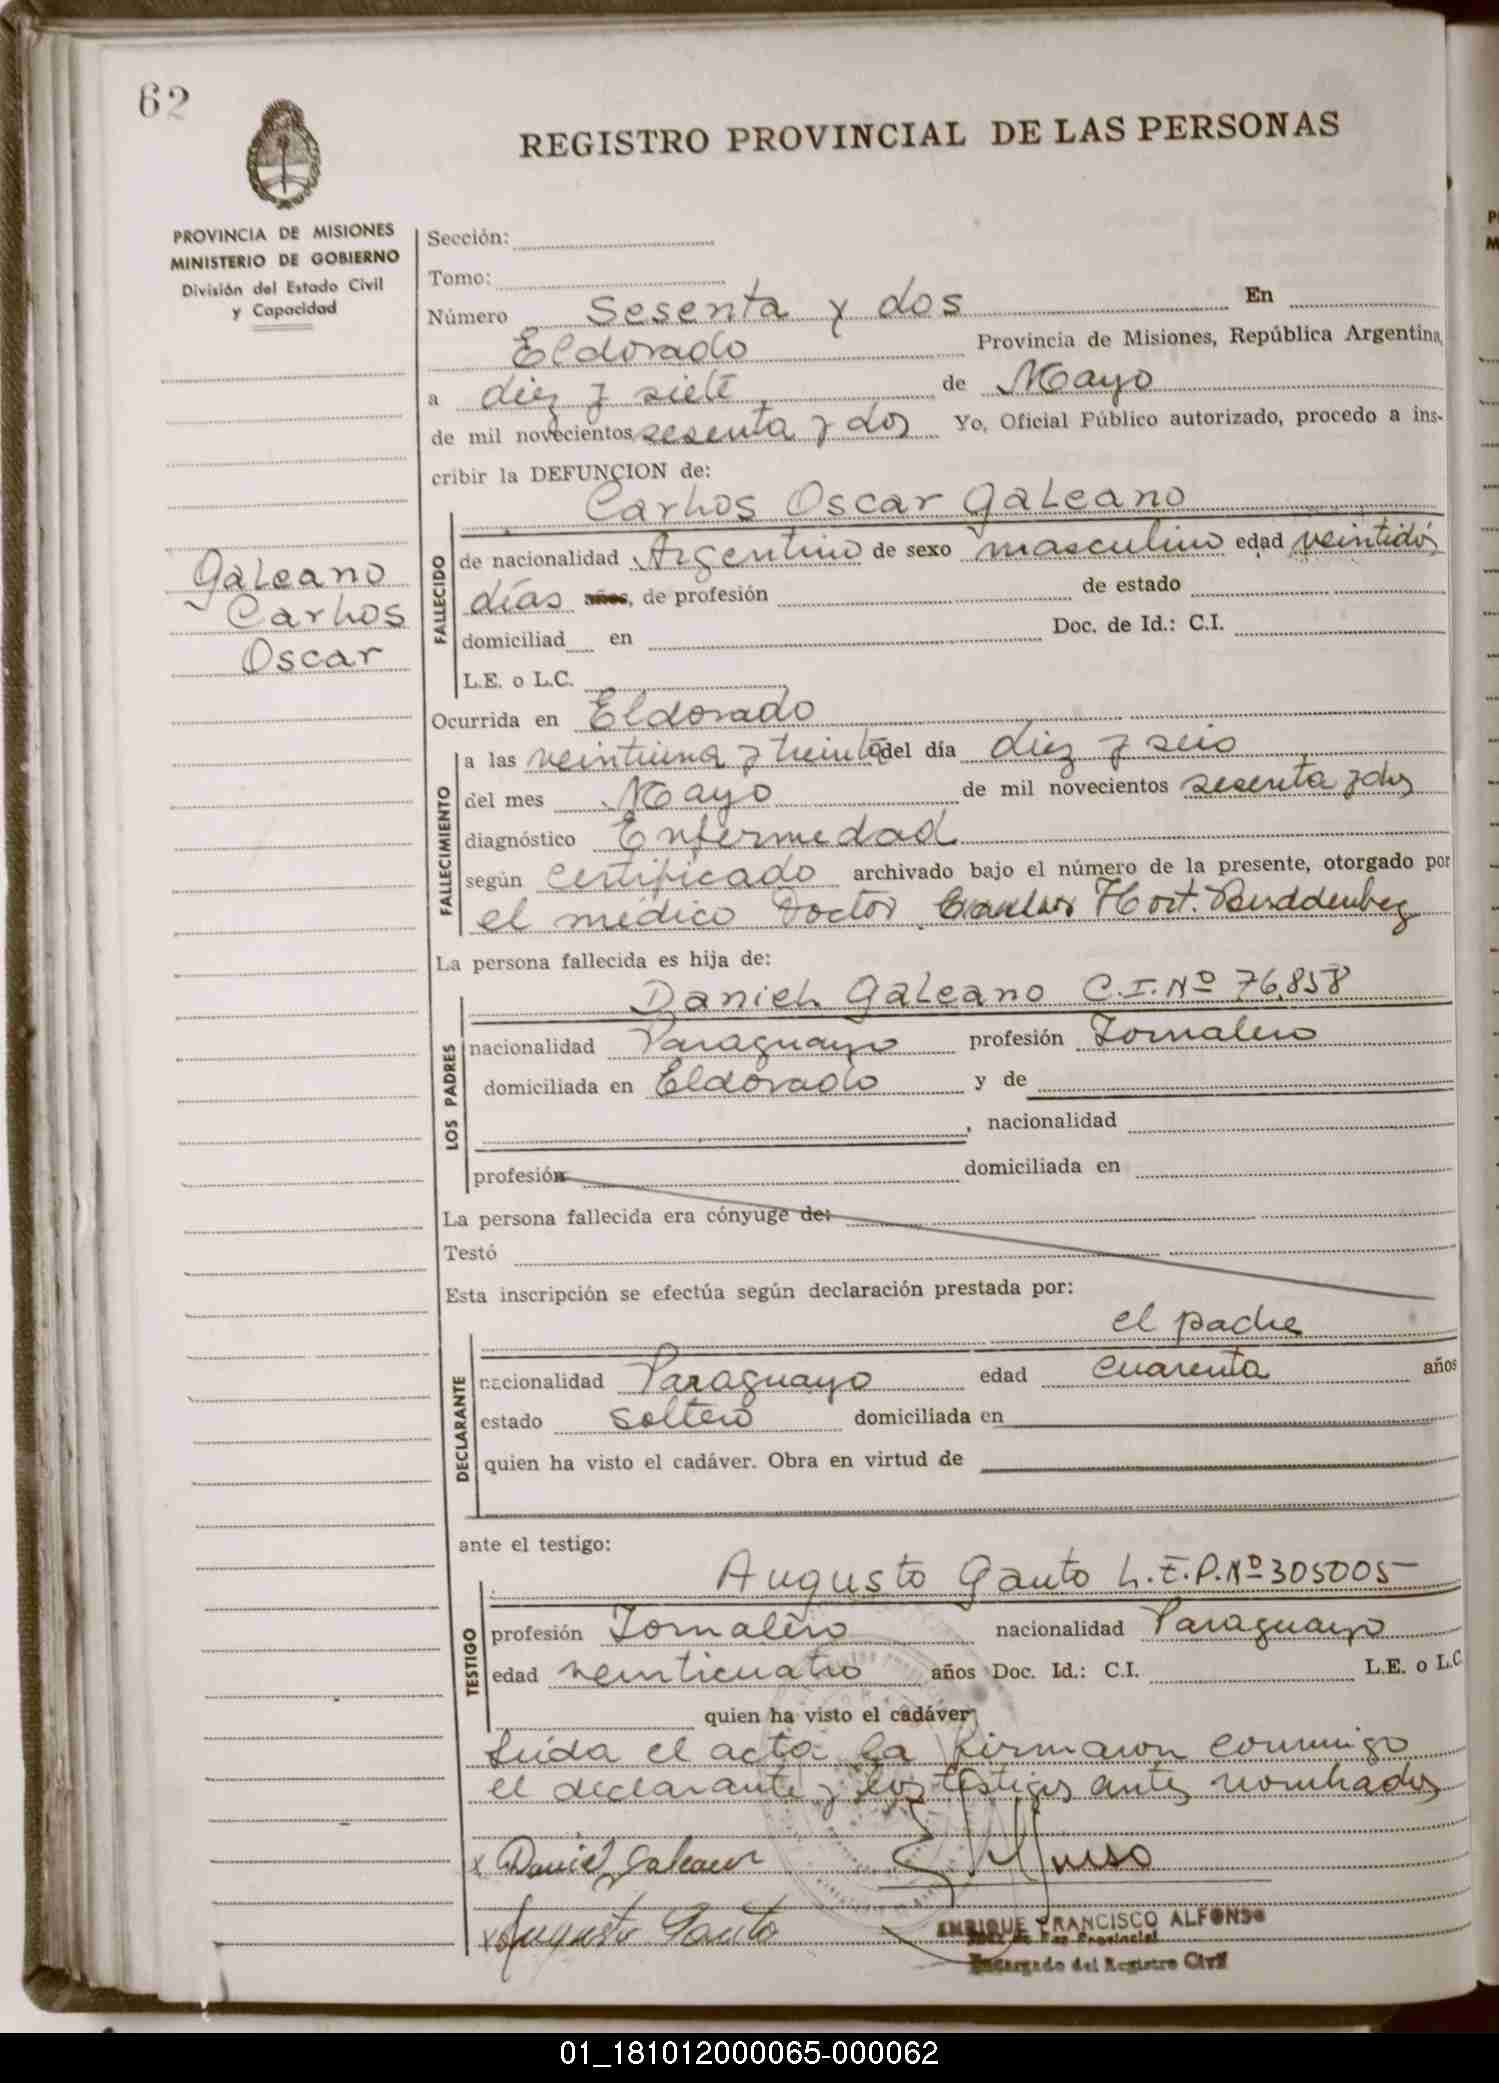 62
REGISTRO PROVINCIAL DE LAS PERSONAS
PROVINCIA DE MISIONES
MINISTERIO DE GOBIERNO
División del Estado Civil
y Capacidad
Galeano
Carlos
Oscar
Sección:
Tomo:
Número Sesenta y dos En
Eldorado Provincia de Misiones, República Argentina,
a diez y siete de Mayo
de mil novecientos sesenta y dos Yo, Oficial Público autorizado, procedo a ins-
cribir la DEFUNCION de:
Carlos Oscar Galeano
FALLECIDO
de nacionalidad Argentino de sexo masculino edad veintidós
días años, de profesión de estado
domiciliad en Doc. de Id.: C.I.
L.E. o L.C.
Ocurrida en Eldorado
FALLECIMIENTO
a las veintiuna y treinta del día diez y seis
del mes Mayo de mil novecientos sesenta y dos
diagnóstico Enfermedad
según certificado archivado bajo el número de la presente, otorgado por
el médico Doctor Carlos Hort. Buddenberg
La persona fallecida es hija de:
Daniel Galeano C.I. Nº 76,858
LOS PADRES
nacionalidad Paraguayo profesión Jornalero
domiciliada en Eldorado y de
, nacionalidad
profesión domiciliada en
La persona fallecida era cónyuge de:
Testó
Esta inscripción se efectúa según declaración prestada por:
el padre
DECLARANTE
nacionalidad Paraguayo edad cuarenta años
estado soltero domiciliada en
quien ha visto el cadáver. Obra en virtud de
ante el testigo:
Augusto Gauto L.E.P. Nº 305005-
TESTIGO
profesión Jornalero nacionalidad Paraguayo
edad veinticuatro años Doc. Id.: C.I. L.E. o L.C
quien ha visto el cadáver
Leída el acta la firmaron conmigo
el declarante y los testigos antes nombrados
x Daniel Galeano
x Augusto Gauto
ENRIQUE FRANCISCO ALFONSO
Juez de Paz Provincial
Encargado del Registro Civil
01_181012000065-000062